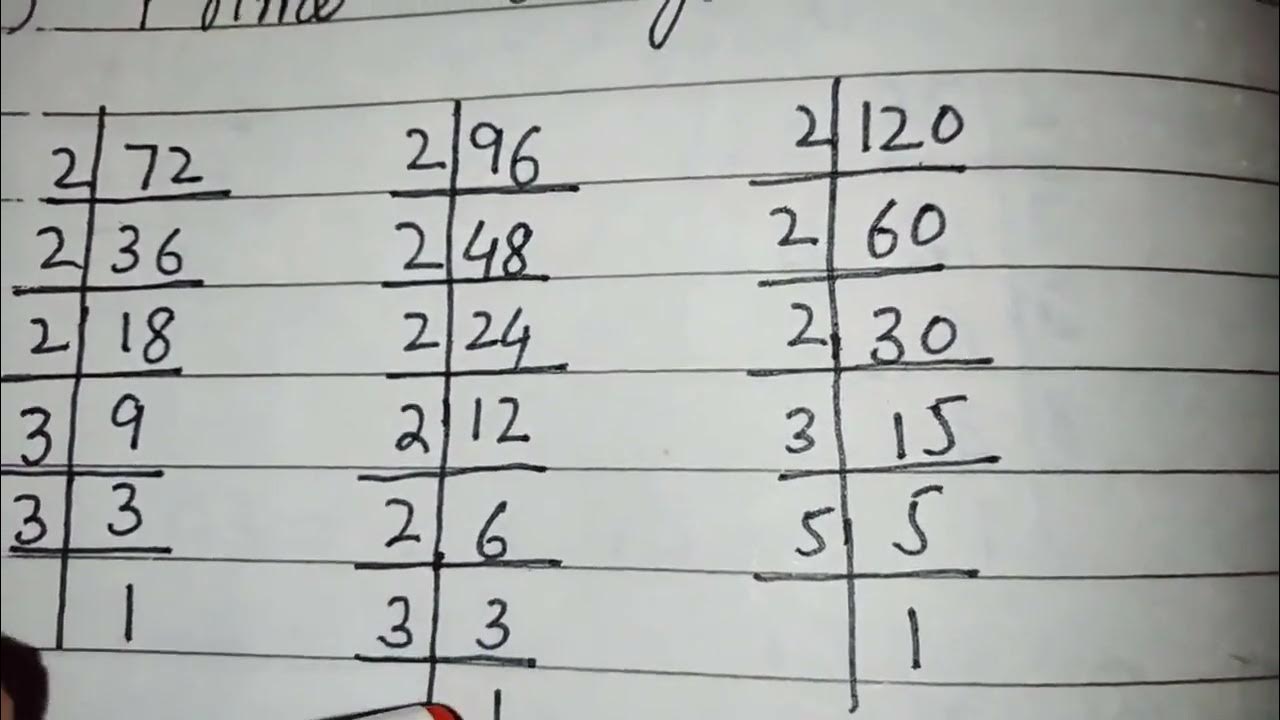 2 72 2 96 2 120
2 36 2 48 2 60
2 18 2 24 2 30
3 9 2 12 3 15
3 3 2 6 5 5
1 3 3 1
1